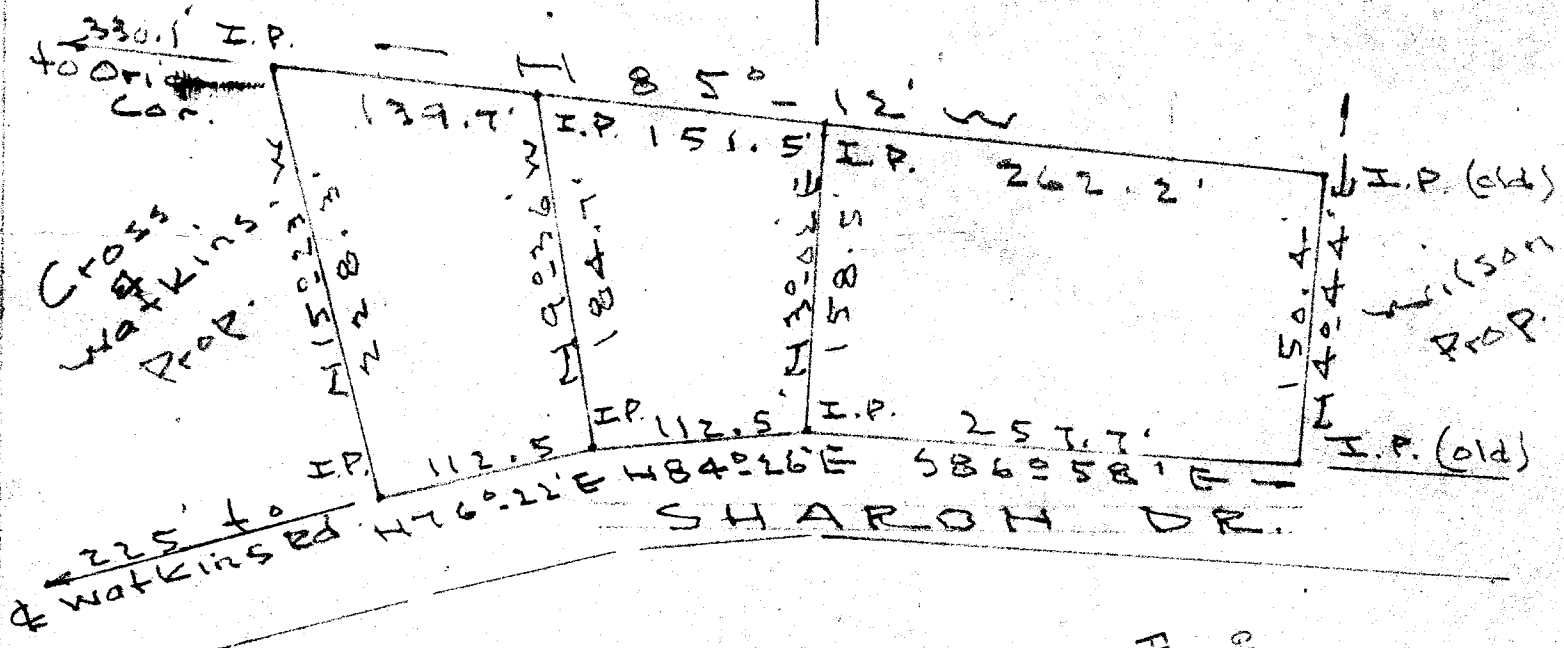 330.1' I.P.
to Orig
Cor.
N 85° - 12' W
139.7'
I.P. 151.5'
I.P.
262.2'
I.P. (old)
Cross
&
Watkins
Prop.
N 15°-23' W
228.3'
N 9°-36' W
184.7'
N 3°-02' E
158.5'
150.4'
N 4°-44' E
Wilson
Prop.
I.P.
112.5
I.P.
112.5'
I.P.
257.7'
I.P. (old)
N 76°-22' E
N 84°-26' E
S 86° 58' E
SHARON DR.
225' to
℄ Watkins Rd